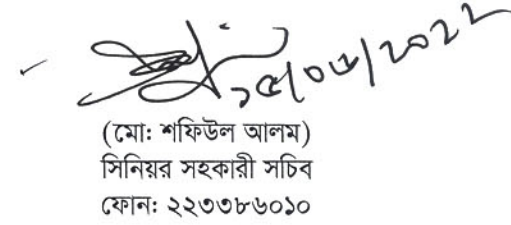 ১৫/০৩/২০২২
(মো: শফিউল আলম)
সিনিয়র সহকারী সচিব
ফোন: ২২৩৩৮৬০১০